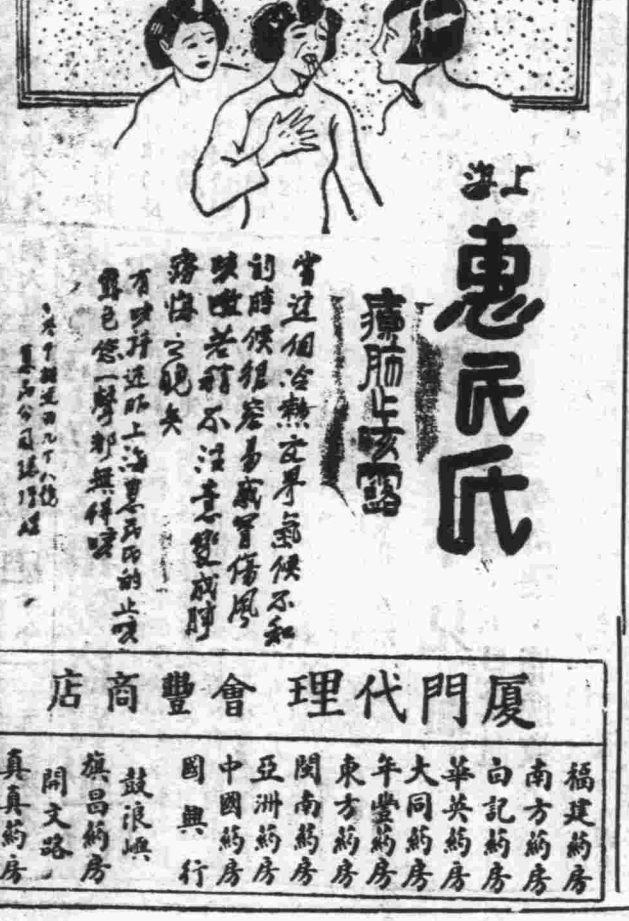 上海
惠民氏
療肺止咳露
當這個冷熱交界氣候不和
的時候很容易感冒傷風
咳嗽若稍不注意變成肺
癆悔之晚矣
有咳許近昨上海惠民氏的止咳
露包您一聲都無得咳
惠民公司
厦門代理會豐商店
福建葯房
南方葯房
白記葯房
華英葯房
大同葯房
年豐葯房
東方葯房
閩南葯房
亞洲葯房
中國葯房
國興行
鼓浪嶼
旗昌葯房
開文路
真真葯房